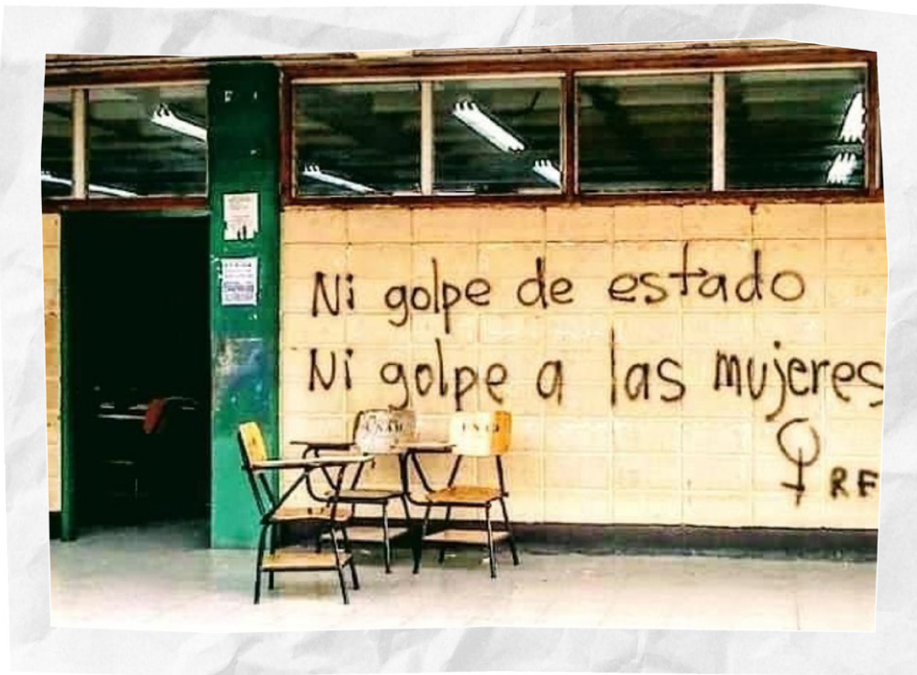 Ni golpe de estado
Ni golpe a las mujeres
RF